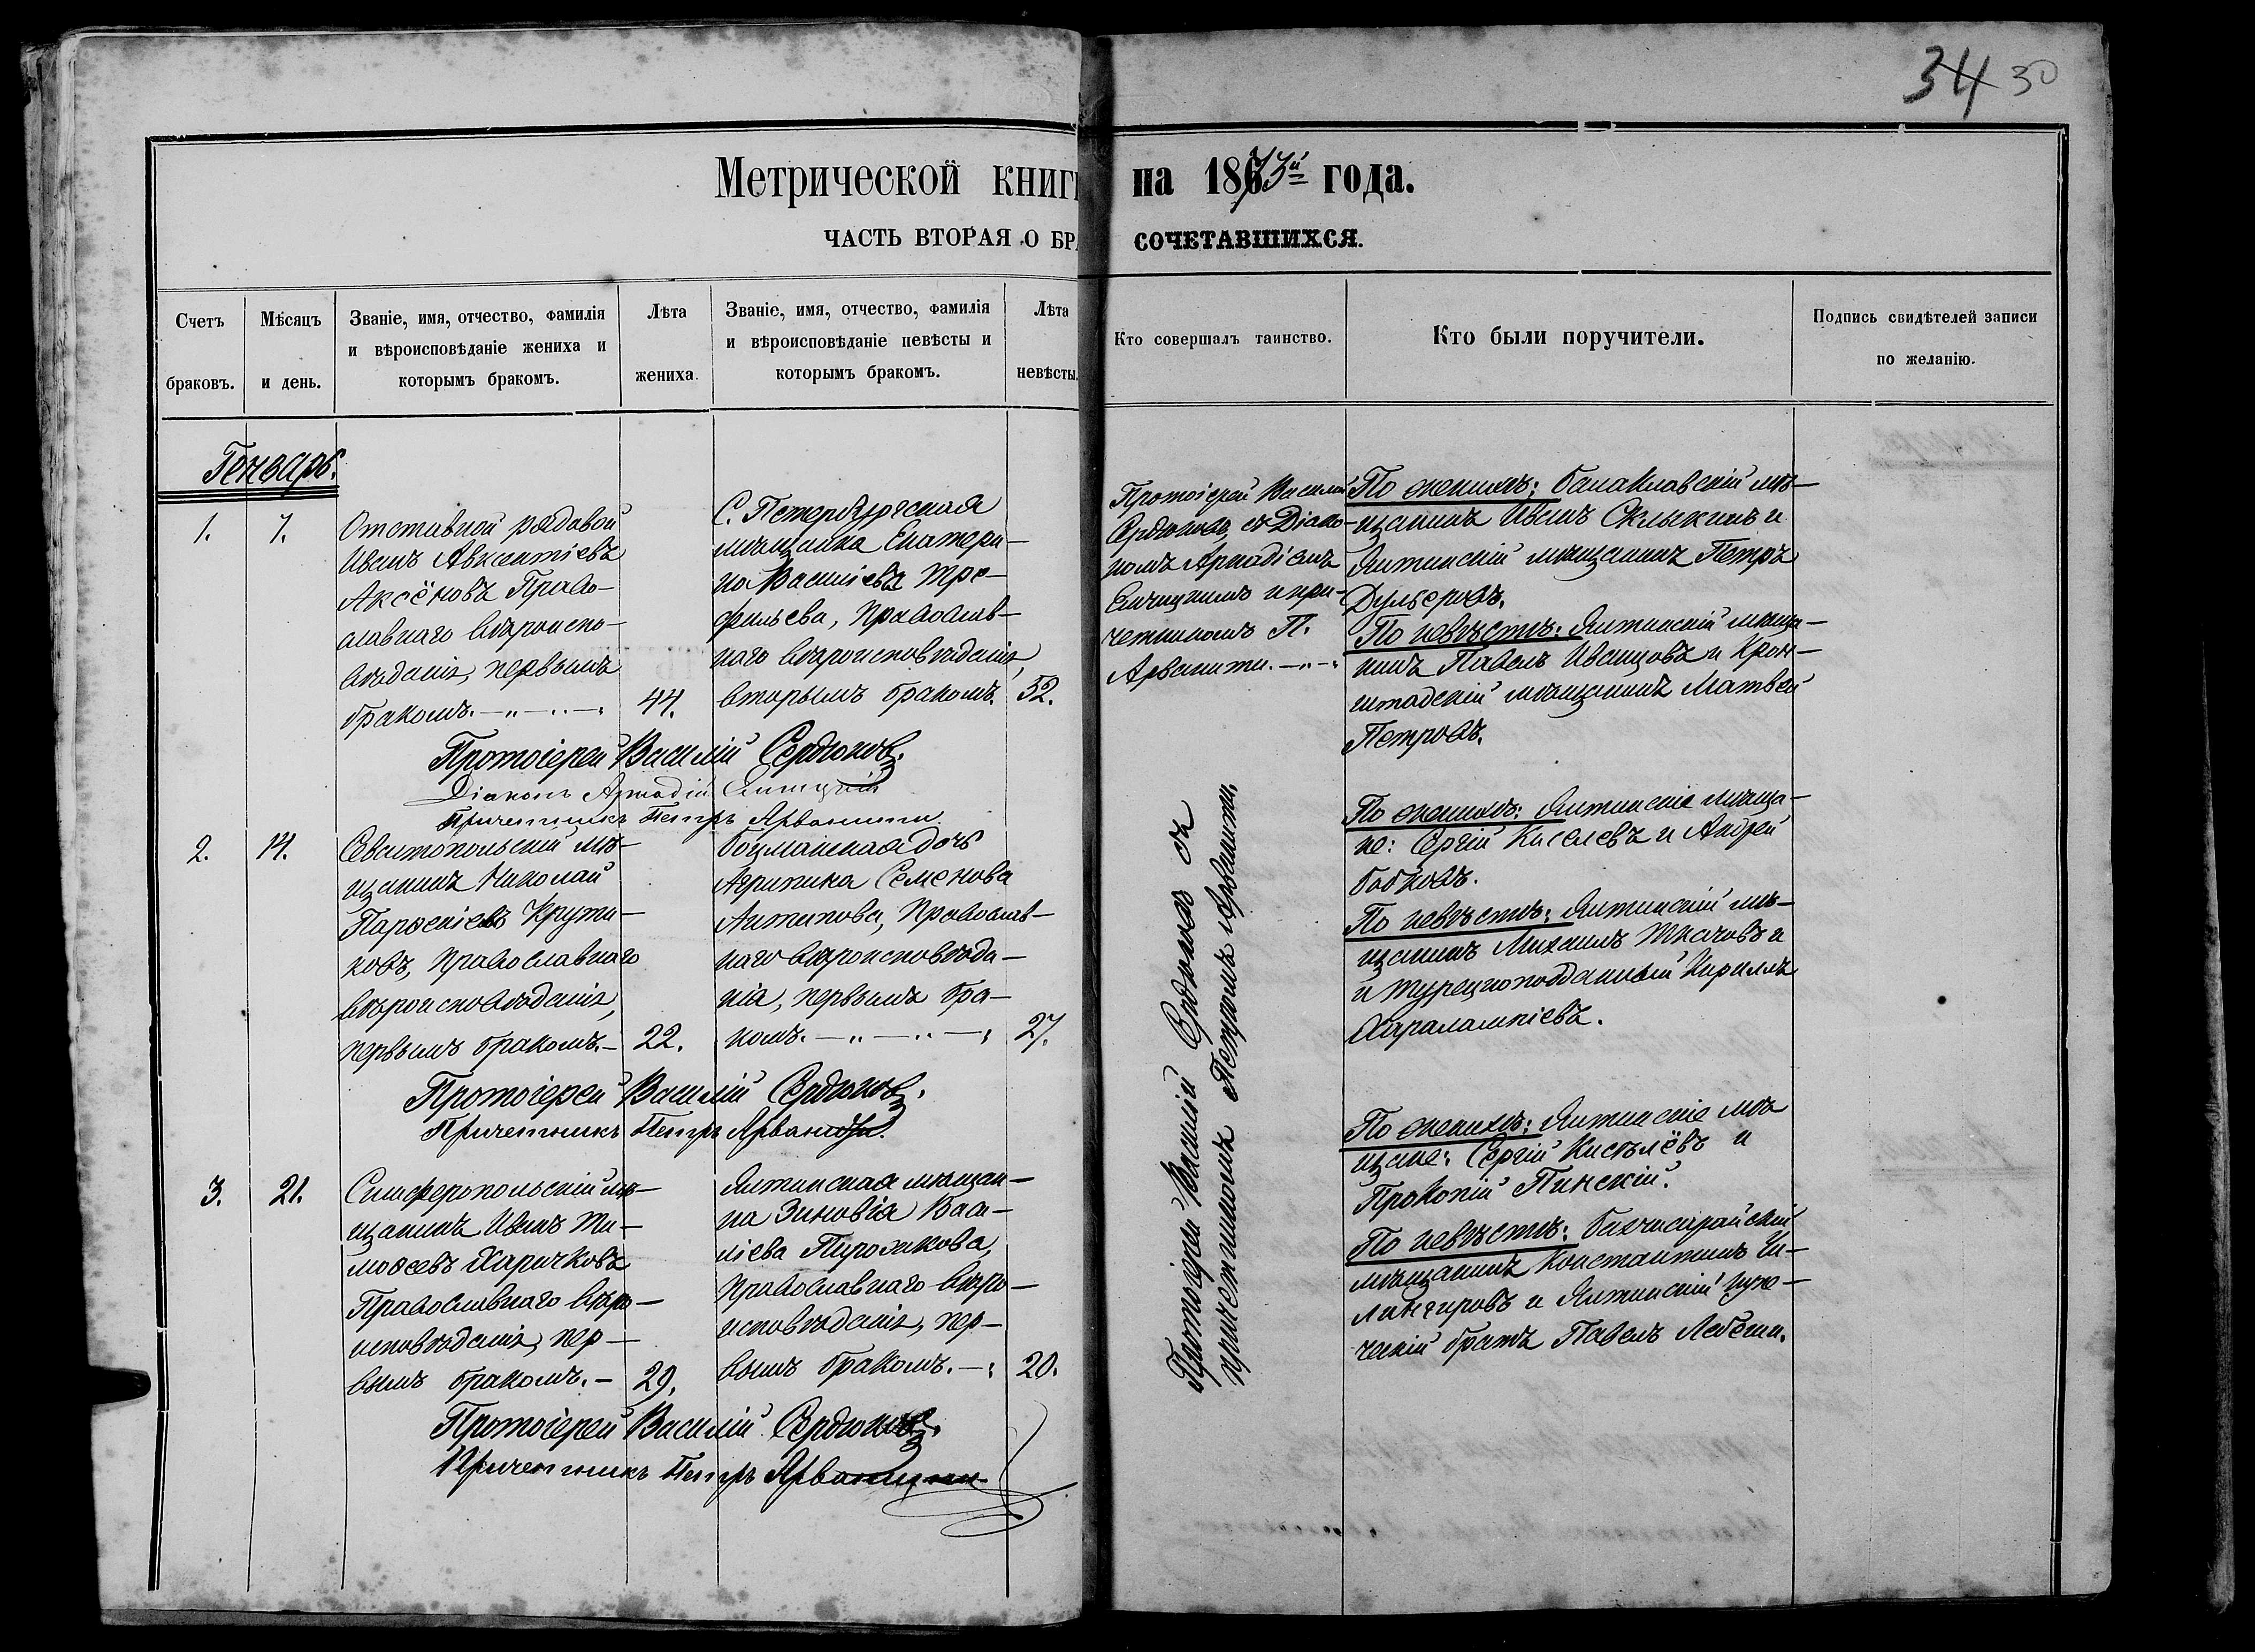 34 30
Метрической книги на 1873й года.
ЧАСТЬ ВТОРАЯ О БРА СОЧЕТАВШИХСЯ.
Счетъ браковъ.
Мѣсяцъ и день.
Званіе, имя, отчество, фамилія
и вѣроисповѣданіе жениха и
которымъ бракомъ.
Лѣта жениха.
Званіе, имя, отчество, фамилія
и вѣроисповѣданіе невѣсты и
которымъ бракомъ.
Лѣта невѣсты.
Кто совершалъ таинство.
Кто были поручители.
Подпись свидѣтелей записи
по желанію.
Генварь.
1.
7.
Отставной рядовой
Иванъ Авксентіевъ
Аксёновъ Право-
славнаго вѣроиспо-
вѣданія, первымъ
бракомъ.
44.
С. Петербургская
мѣщанка Екатери-
на Васильева Тре-
фильева, Православ-
наго вѣроисповѣданія,
вторымъ бракомъ.
32.
Протоіерей Василій
Сердюковъ съ Діако-
номъ Аркадіемъ
и при-
четникомъ П.
Арванити.
По женихѣ: Балаклавскій мѣ-
щанинъ Иванъ Склыкинъ и
Ялтинскій мѣщанинъ Петръ
Дульеровъ.
По невѣстѣ: Ялтинскій мѣща-
нинъ Павелъ Иванцовъ и Крон-
штадскій мѣщанинъ Матвей
Петровъ.
Протоіерей Василій Сердюковъ.
Діаконъ Аркадій
Причетникъ Петръ Арванити.
2.
14.
Севастопольскій мѣ-
щанинъ Николай
Парѳеніевъ Крути-
ковъ, Православнаго
вѣроисповѣданія,
первымъ бракомъ.
22.
Боцманская дочь
Агрипина Семенова
Антипова, Православ-
наго вѣроисповѣда-
нія, первымъ бра-
комъ.
27.
По женихѣ: Ялтинскіе мѣща-
не: Сергій Киселевъ и Андрей
Бобковъ.
По невѣстѣ: Ялтинскій мѣ-
щанинъ Михаилъ Ткачовъ и
и турецкоподданный Кириллъ
Харалампіевъ.
Протоіерей Василій Сердюковъ.
Причетникъ Петръ Арванити.
3.
21.
Симферопольскій мѣ-
щанинъ Иванъ Ти-
моѳеевъ Харичковъ
Православнаго вѣро-
исповѣданія, пер-
вымъ бракомъ.
29.
Ялтинская мѣщан-
ка Зиновія Васи-
ліева Пирожкова,
Православнаго вѣро-
исповѣданія, пер-
вымъ бракомъ.
20.
Протоіерей Василій Сердюковъ съ
причетникомъ Петромъ Арванити.
По женихѣ: Ялтинскіе мѣ
щане: Сергій Кисѣлёвъ и
Прокопій Пинскій.
По невѣстѣ: Бахчисарайскій
мѣщанинъ Константинъ Чи-
лингировъ и Ялтинскій купе-
ческій братъ Павелъ Лебеши.
Протоіерей Василій Сердюковъ.
Причетникъ Петръ Арванити